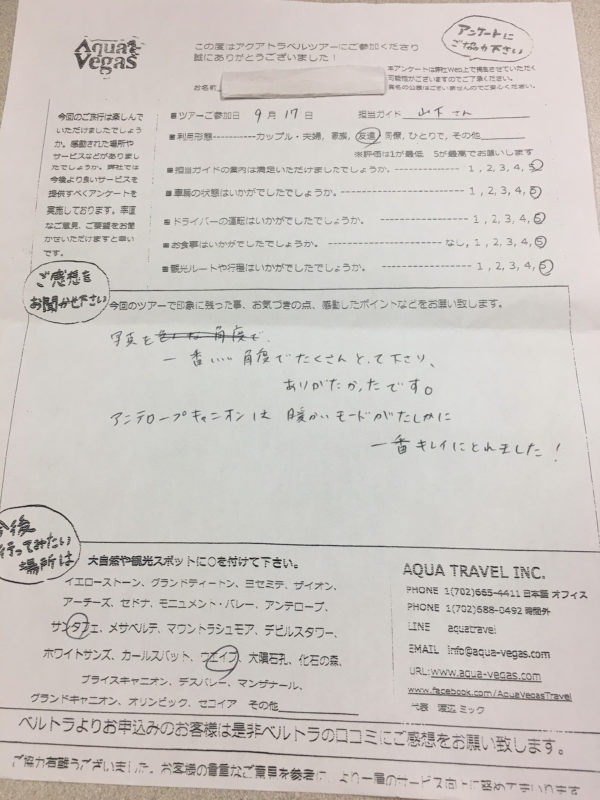 Aqua Vegas
この度はアクアトラベルツアーにご参加くださり
誠にありがとうございました！
アンケートに
ご協力下さい
本アンケートは弊社Web上で掲載させていただく
可能性がございますのでご了承ください。
実名の公表はございませんのでご安心ください。
お名前
今回のご旅行は楽しんで
いただけましたでしょう
か。感動された場所や
サービスなどがありまし
たでしょうか。弊社では
今後より良いサービスを
提供すべくアンケートを
実施しております。率直
なご意見、ご要望をお聞
かせいただけますと幸い
です。
■ツアーご参加日 9月17日 担当ガイド 山下さん
■利用形態------------カップル・夫婦, 家族, 友達, 同僚, ひとりで, その他
※評価は1が最低 5が最高でお願いします
■担当ガイドの案内は満足いただけましたでしょうか。 ---------- 1, 2, 3, 4, 5
■車輌の状態はいかがでしたでしょうか。 -------------------- 1, 2, 3, 4, 5
■ドライバーの運転はいかがでしたでしょうか。 --------------- 1, 2, 3, 4, 5
■お食事はいかがでしたでしょうか。 ------------------ なし, 1, 2, 3, 4, 5
■観光ルートや行程はいかがでしたでしょうか。 --------------- 1, 2, 3, 4, 5
ご感想を
お聞かせ下さい
今回のツアーで印象に残った事、お気づきの点、感動したポイントなどをお願い致します。
写真を色んな角度で、
一番いい角度でたくさんとって下さり、
ありがたかったです。
アンテロープキャニオンは 暖かいモードがたしかに
一番キレイにとれました！
今後
行ってみたい
場所は
大自然や観光スポットに○を付けて下さい。
イエローストーン、グランドティートン、ヨセミテ、ザイオン、
アーチーズ、セドナ、モニュメント・バレー、アンテロープ、
サンタフェ、メサベルデ、マウントラシュモア、デビルスタワー、
ホワイトサンズ、カールスバット、ウェイブ、大隕石孔、化石の森、
ブライスキャニオン、デスバレー、マンザナール、
グランドキャニオン、オリンピック、セコイア その他
AQUA TRAVEL INC.
PHONE 1(702)665-4411 日本語オフィス
PHONE 1(702)588-0492 時間外
LINE aquatravel
EMAIL info@aqua-vegas.com
URL:www.aqua-vegas.com
www.facebook.com/AquaVegasTravel
代表 渡辺 ミック
ベルトラよりお申込みのお客様は是非ベルトラの口コミにご感想をお願い致します。
ご協力有難うございました。お客様の貴重なご意見を参考に、より一層のサービス向上に努めてまいります